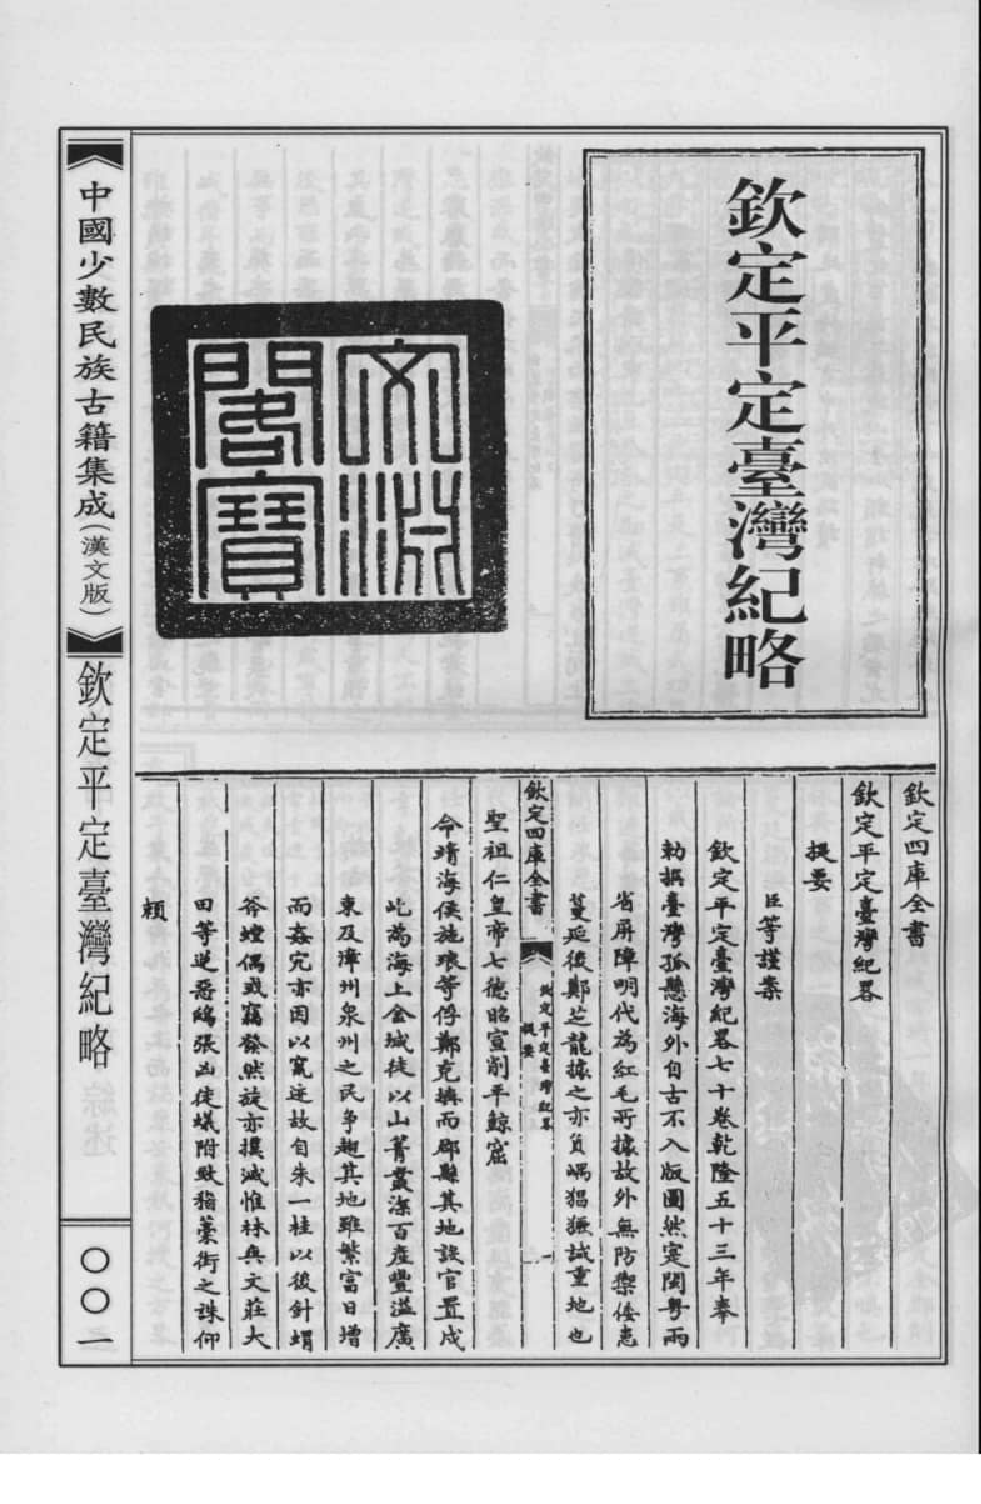 欽定平定臺灣紀略
文淵
閣寶
欽定四庫全書
欽定平定臺灣紀畧
提要
臣等謹案
欽定平定臺灣紀畧七十卷乾隆五十三年奉
勅撰臺灣孤懸海外自古不入版圖然寔閩粤兩
省屏障明代為紅毛所據故外無防禦倭患
蔓延後鄭芝龍據之亦負嵎猖獗誠重地也
欽定四庫全書
欽定平定臺灣紀畧
提要
一
聖祖仁皇帝七德昭宣削平鯨窟
令靖海侯施琅等俘鄭克塽而郡縣其地設官置戍
屹為海上金城徒以山菁叢深百產豐溢廣
東及漳州泉州之民爭趨其地雖繁富日增
而姦宄亦因以竄迹故自朱一桂以後針蝟
斧螳偶或竊發然旋亦撲滅惟林爽文莊大
田等逆惡鴟張凶徒蟻附致稽藁街之誅仰
賴
《中國少數民族古籍集成(漢文版)》
欽定平定臺灣紀略
〇〇一